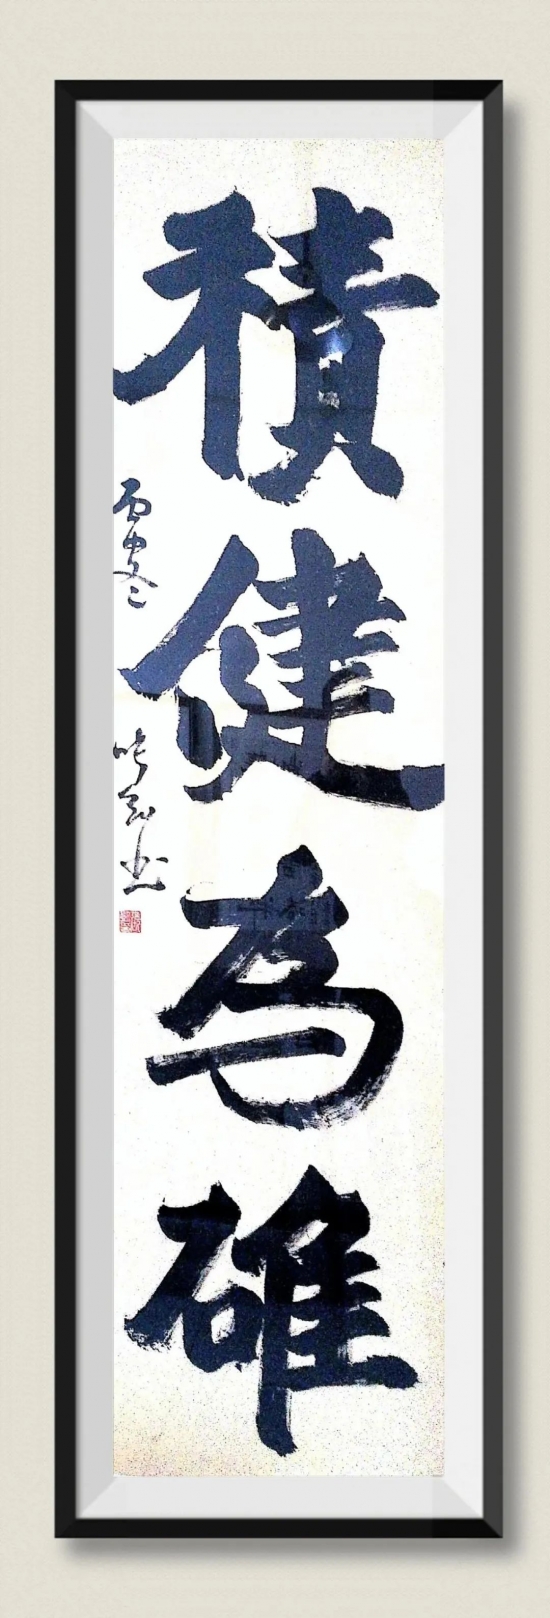 積健為雄
丙申冬 書